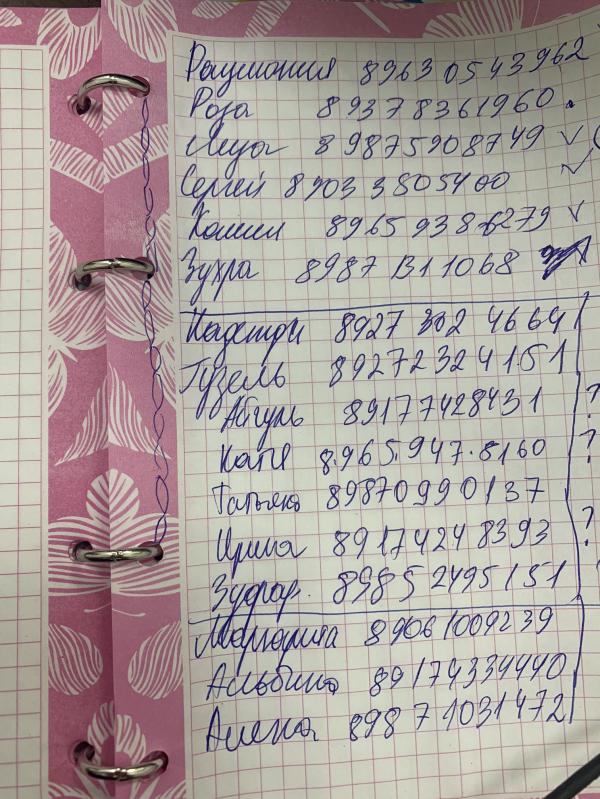 Раушания 89630543962
Роза 89378361960.
Луза 89875908749 ✓
Сергей 89033805400 ✓
Камил 89659386279 ✓
Зухра 89871311068
8927 302 4664
Гузель 89272324151
Айгуль 89177428431 ?
Катя 8.965.947.8160 ?
Татьяна 89870990137
Ирина 89174248393 ?
Зуфар. 89852495151
Маргарита 89061009239
Альбина 89174334440
Алена 89871031472